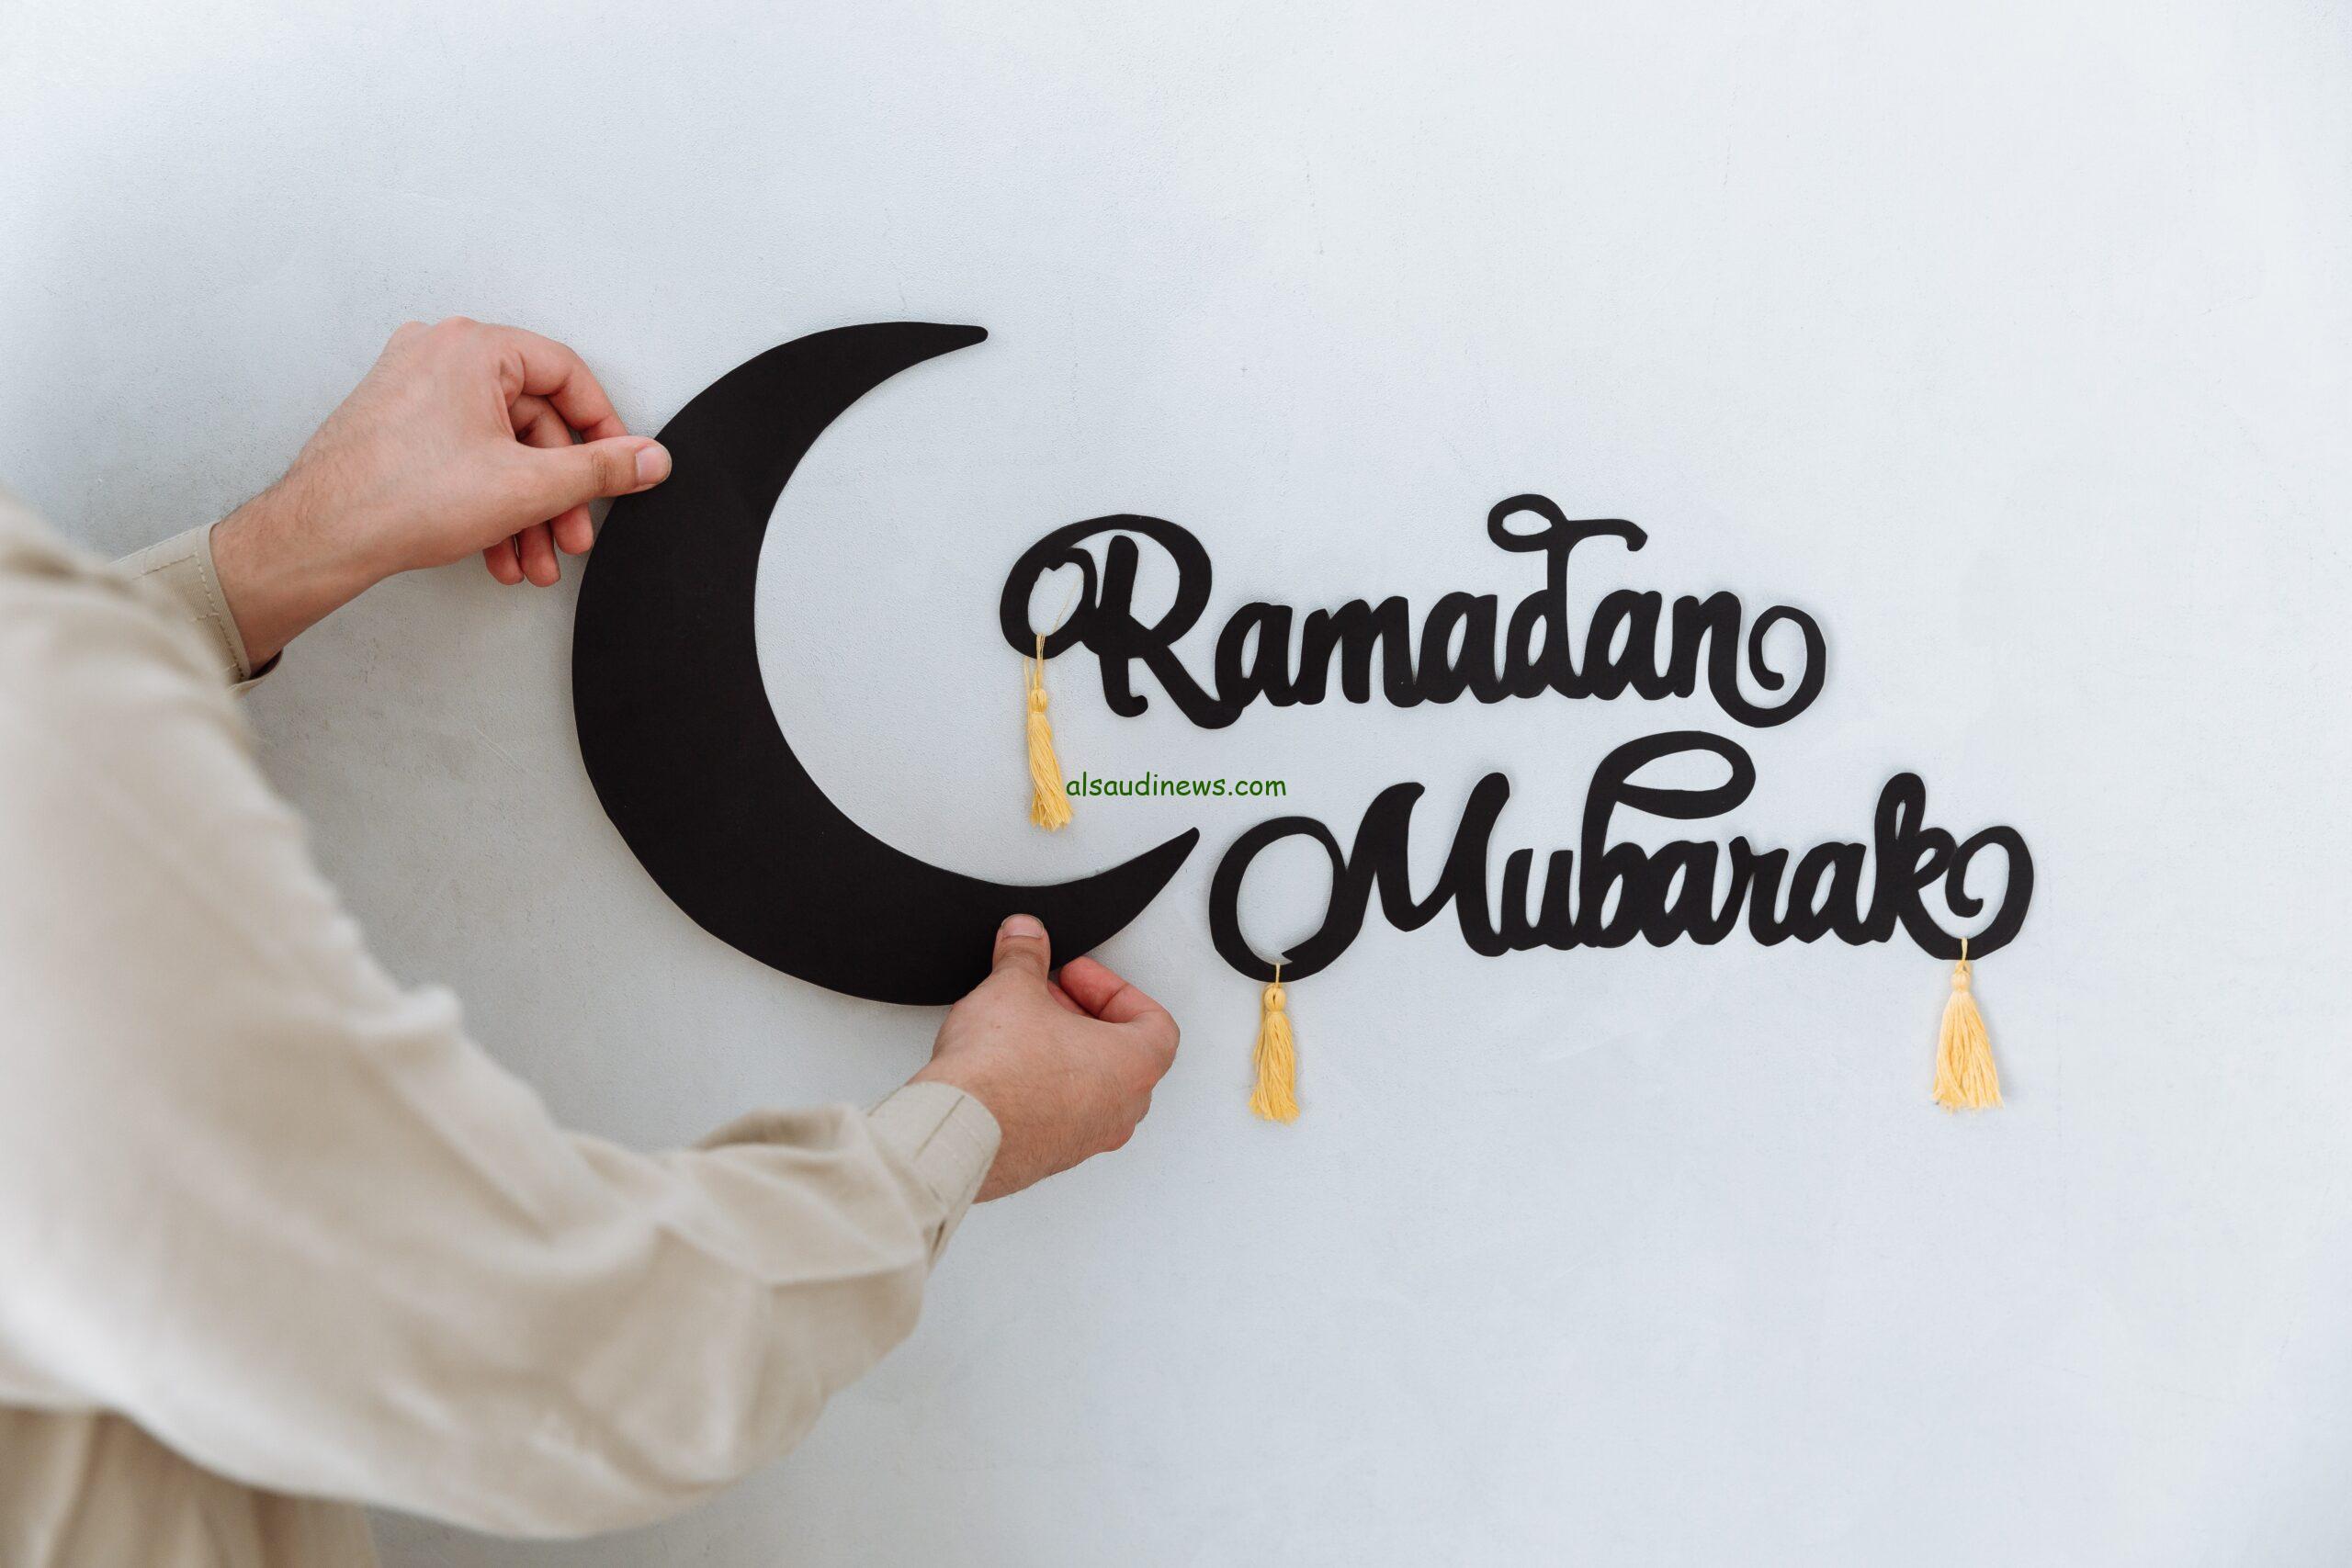 Ramadan
alsaudinews.com
Mubarak